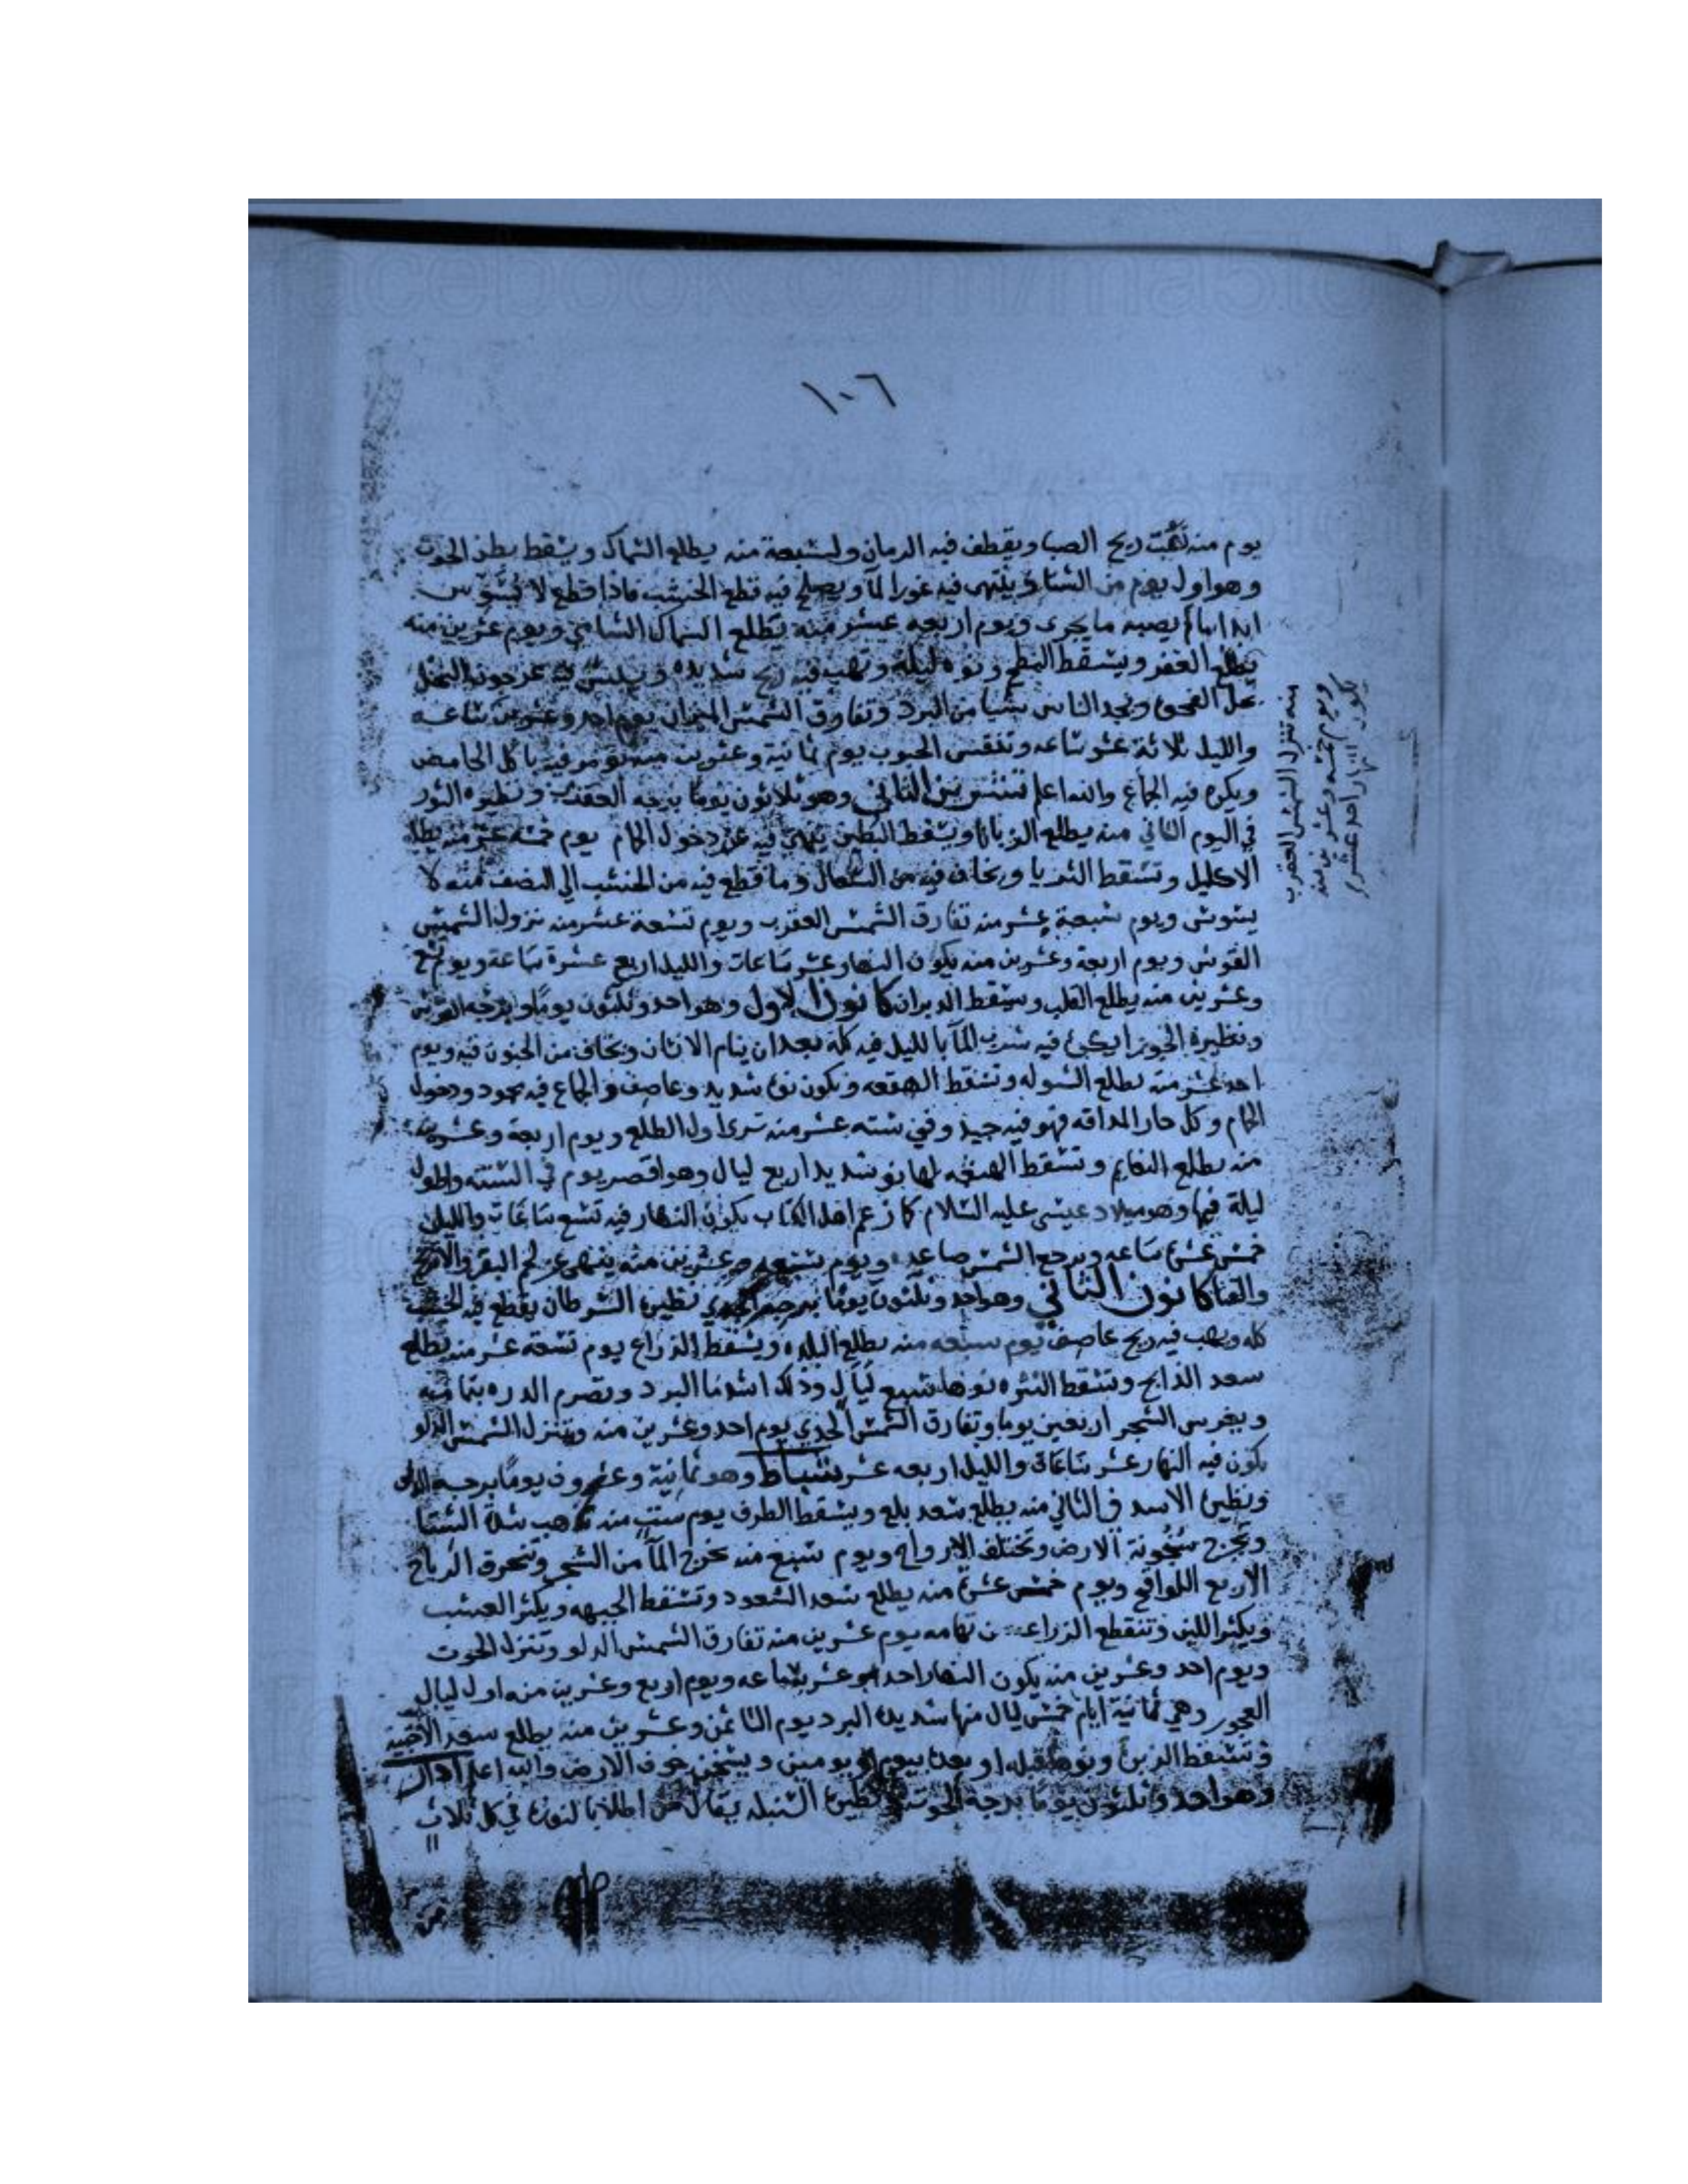 ١٠٦
يوم منه تهبت ريح الصبا ويقطف فيه الرمان ولسبعة منه يطلع السماك ويسقط بطن الحوت
وهو اول يوم من الشتا وينتهى فيه غور الما ويصلح فيه قطع الخشب فاذا قطع لا يسوس
ابدا يصبه ما يجرى ويوم اربعه عشر منه يطلع السماك الشامي ويوم عشرين منه
يطلع الغفر ويسقط النطح ونوه ليلة وتهب فيه ريح شديده
ويجد الناس شيا من البرد وتفارق الشمس الميزان يوم احد وعشرين ساعه
والليل ثلاثة عشر ساعه وتنقص الحبوب يوم ثمانية وعشرين منه يومر فيه باكل الحامض
ويكره فيه الجماع والله اعلم تشرين الثاني وهو ثلاثون يوما برجه العقرب ونظيره الثور
في اليوم الثاني منه يطلع الزبانا ويسقط البطين ينهى فيه عن دخول الحمام يوم خمسة عشر منه يطلع
الاكليل وتسقط الثريا ويخاف فيه من السعال وما قطع فيه من الخشب الي النصف منه لا
يسوس ويوم سبعة عشر منه تفارق الشمس العقرب ويوم تسعة عشر منه نزول الشمس
القوس ويوم اربعة وعشرين منه يكون النهار عشر ساعات والليل اربع عشرة ساعة ويوم تسع
وعشرين منه يطلع القلب ويسقط الدبران كانون الاول وهو احد وثلثون يوما وبرجه القوس
ونظيره الجوزا يكره فيه شرب الما بالليل فيه كله بعد ان ينام الانسان ويخاف من الجنون فيه ويوم
احد عشر منه يطلع الشوله وتسقط الهقعه ويكون نوء شديد وعاصف والجماع فيه محمود ودخول
الحمام وكل حار المداقه فهو فيه جيد وفي سته عشر منه ترى اول الطلع ويوم اربعة وعشرين
منه يطلع النعايم وتسقط الهنعه لها نو شديد اربع ليال وهو اقصر يوم في السنه واطول
ليلة فيها وهو ميلاد عيسى عليه السلام كما زعم اهل الكتاب يكون النهار فيه تسع ساعات والليل
خمس عشرة ساعه ويرجع الشمس صاعده ويوم تسعه وعشرين منه ينهى عن لحم البقر والاترج
والقثا كانون الثاني وهو احد وثلثون يوما برجه الجدي نظيره السرطان يقطع فيه الخشب
كله ويهب فيه ريح عاصف يوم سبعه منه يطلع البلده ويسقط الذراع يوم تسعة عشر منه يطلع
سعد الذابح وتسقط النثره نوها سبع ليال وذلك اشد ما البرد ويصرم الدره بتهامه
ويغرس الشجر اربعين يوما وتفارق الشمس الجدي يوم احد وعشرين منه وتنزل الشمس الدلو
يكون فيه النهار عشر ساعات والليل اربعه عشر شباط وهو ثمانية وعشرون يوما برجه الدلو
ونظيره الاسد في الثاني منه يطلع سعد بلع ويسقط الطرف يوم ست منه تذهب شدة الشتا
ويخرج سخونة الارض وتختلف الارواح ويوم سبع منه يخرج الما من الشجر وتتحرق الرياح
الاربع اللواقح ويوم خمس عشرة منه يطلع سعد السعود وتسقط الجبهه ويكثر العشب
ويكثر اللبن وتنقطع الزراعه من تهامه يوم عشرين منه تفارق الشمس الدلو وتنزل الحوت
ويوم احد وعشرين منه يكون النهار احد عشر ساعه ويوم اربع وعشرين منه اول ليال
العجوز وهي ثمانية ايام خمس ليال منها شديدة البرد يوم الثامن وعشرين منه يطلع سعد الاخبية
وتسقط الزبرة ونوها قبله او بعده بيوم او يومين ويسخن جوف الارض والله اعلم اذار
وهو احد وثلثون يوما برجه الحوت نظيره السنبله يقال من اطلا بالنورة في كل ثلاث
منه تنزل الشمس العقرب
ويوم خمسه وعشرين منه
يكون النهار احد عشر